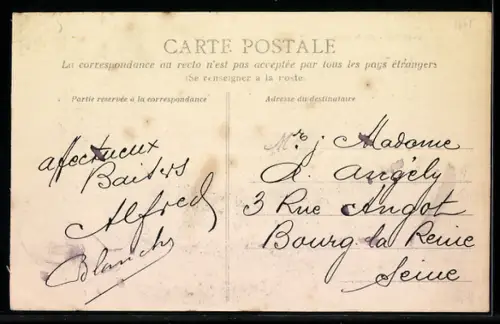 CARTE POSTALE
La correspondance au recto n'est pas acceptée par tous les pays étrangers
(Se renseigner à la Poste)
Partie réservée à la correspondance
Adresse du destinataire
affectueux
Baisers
Alfred
Blanche
Mr j Madame
A. Angély
3 Rue Angot
Bourg la Reine
Seine